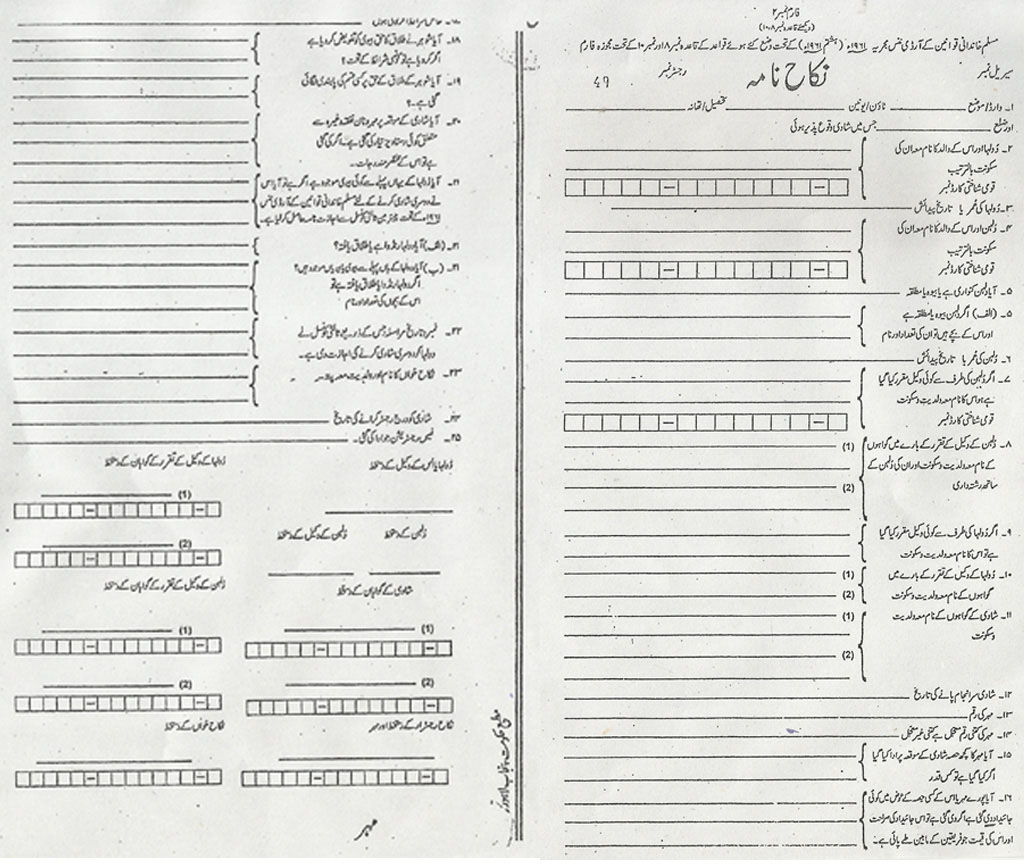 فارم نمبر ۲
(دیکھئے قاعدہ نمبر ۸، ۱۰)
مسلم خاندانی قوانین کے آرڈی ننس مجریہ ۱۹۶۱ء (ہشتم ۱۹۶۱ء) کے تحت وضع کئے ہوئے قواعد کے قاعدہ نمبر ۸ اور نمبر ۱۰ کے تحت مجوزہ فارم
سیریل نمبر
رجسٹر نمبر
نکاح نامہ
49
۱۔ وارڈ/موضع ٹاؤن/یونین تحصیل/تھانہ
اور ضلع جس میں شادی وقوع پذیر ہوئی
۲۔ دُولہا اور اس کے والد کا نام معہ ان کی
سکونت بالترتیب
قومی شناختی کارڈ نمبر
۳۔ دُولہا کی عمر یا تاریخ پیدائش
۴۔ دُلہن اور اس کے والد کا نام معہ ان کی
سکونت بالترتیب
قومی شناختی کارڈ نمبر
۵۔ آیا دُلہن کنواری ہے یا بیوہ یا مطلقہ
۵۔ (الف) اگر دُلہن بیوہ یا مطلقہ ہے
اور اس کے بچے ہیں تو ان کی تعداد اور نام
۶۔ دُلہن کی عمر یا تاریخ پیدائش
۷۔ اگر دُلہن کی طرف سے کوئی وکیل مقرر کیا گیا
ہے تو اس کا نام معہ ولدیت و سکونت
قومی شناختی کارڈ نمبر
۸۔ دُلہن کے وکیل کے تقرر کے بارے میں گواہوں (1)
کے نام معہ ولدیت و سکونت اور ان کی دُلہن کے
ساتھ رشتہ داری (2)
۹۔ اگر دُولہا کی طرف سے کوئی وکیل مقرر کیا گیا
ہے تو اس کا نام معہ ولدیت و سکونت
۱۰۔ دُولہا کے وکیل کے تقرر کے بارے میں (1)
گواہوں کے نام معہ ولدیت و سکونت (2)
۱۱۔ شادی کے گواہوں کے نام معہ ولدیت (1)
و سکونت
(2)
۱۲۔ شادی سرانجام پانے کی تاریخ
۱۳۔ مہر کی رقم
۱۴۔ مہر کی کتنی رقم معجل ہے کتنی غیر معجل
۱۵۔ آیا مہر کا کچھ حصہ شادی کے موقعہ پر ادا کیا گیا
اگر کیا گیا ہے تو کس قدر
۱۶۔ آیا پورے مہر یا اس کے کسی حصہ کے عوض میں کوئی
جائیداد دی گئی ہے اگر دی گئی ہے تو اس جائیداد کی صراحت
اور اس کی قیمت جو فریقین کے مابین طے پائی ہے۔
۱۷۔ خاص شرائط اگر کوئی ہوں
۱۸۔ آیا شوہر نے طلاق کا حق بیوی کو تفویض کر دیا ہے
اگر کر دیا ہے تو کونسی شرائط کے تحت ؟
۱۹۔ آیا شوہر کے طلاق کے حق پر کسی قسم کی پابندی لگائی
گئی ہے۔؟
۲۰۔ آیا شادی کے موقعہ پر مہر و نان نفقہ وغیرہ سے
متعلق کوئی دستاویز تیار کی گئی ہے۔ اگر کی گئی
ہے تو اس کے مختصر مندرجات۔
۲۱۔ آیا دُولہا کے یہاں پہلے سے کوئی بیوی موجود ہے اگر ہے تو آیا اس
نے دوسری شادی کرنے کے لئے مسلم خاندانی قوانین کے آرڈی ننس
۱۹۶۱ء کے تحت چیئرمین ثالثی کونسل سے اجازت نامہ حاصل کر لیا ہے۔
۲۱۔ (الف) آیا دولہا رنڈوا ہے یا طلاق یافتہ؟
۲۱۔ (ب) آیا دولہا کے ہاں پہلے سے بیوی یاں موجود ہیں؟
اگر دولہا رنڈوا یا طلاق یافتہ ہے تو
اس کے بچوں کی تعداد اور نام
۲۲۔ نمبر و تاریخ مراسلہ جس کے ذریعے ثالثی کونسل نے
دولہا کو دوسری شادی کرنے کی اجازت دی ہے۔
۲۳۔ نکاح خواں کا نام اور ولدیت معہ پتہ
۲۴۔ شادی کو درج رجسٹر کرانے کی تاریخ
۲۵۔ فیس رجسٹریشن جو ادا کی گئی۔
دُولہا یا اس کے وکیل کے دستخط
دُولہا کے وکیل کے تقرر کے گواہان کے دستخط
(1)
(2)
دُلہن کے دستخط
دُلہن کے وکیل کے دستخط
دُلہن کے وکیل کے تقرر کے گواہان کے دستخط
شادی کے گواہان کے دستخط
(1)
(1)
(2)
(2)
نکاح رجسٹرار کے دستخط اور مہر
نکاح خواں کے دستخط
مہر
مطبع حکومت پنجاب لاہور